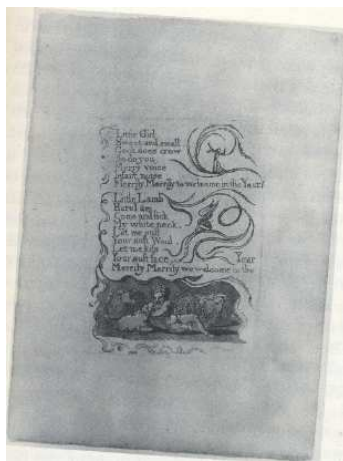 Little Girl
Sweet and small
Cock does crow
So do you
Merry voice
Infant noise
Merrily Merrily to welcome in the Year
Little Lamb
Here I am
Come and lick
My white neck
Let me pull
Your soft Wool
Let me kiss
Your soft face
Merrily Merrily we welcome in the
Year